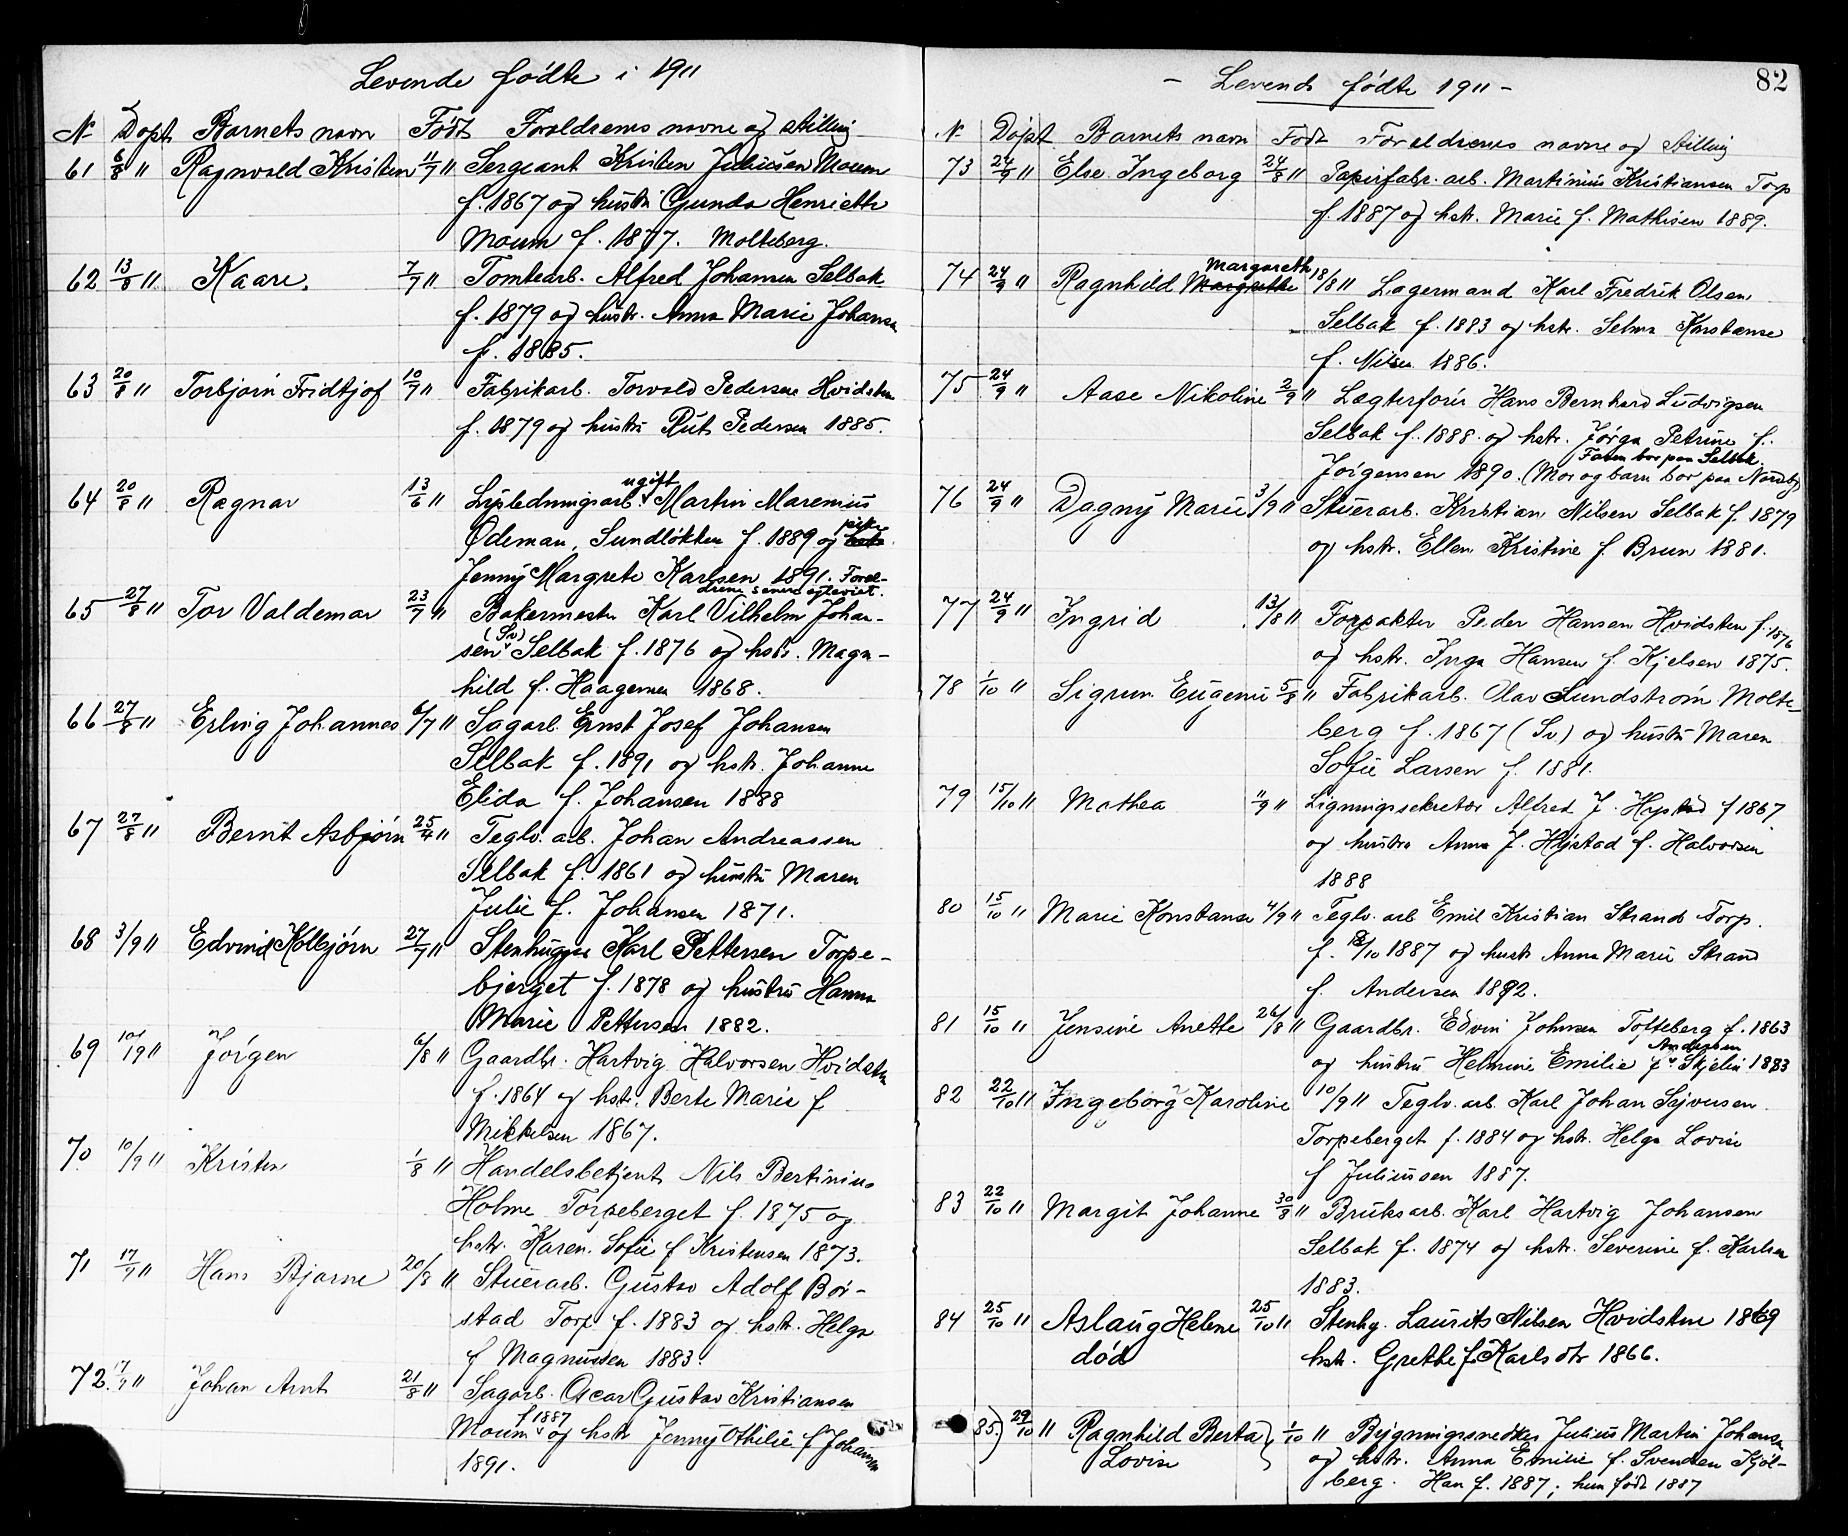 Levende fødte i 1911
N Døpt Barnets navn Født Foreldrenes navne og stilling
61 6/8 " Ragnvald Kristen 11/7 " Sergeant Kristen Juliussen Moum
f. 1867 og hustru Gunda Henriette
Moum f. 1877. Molteberg.
62 13/8 " Kaare. 7/7 " Tomtearb. Alfred Johansen Selbak
f. 1879 og hustr. Anna Marie Johansen
f. 1885.
63 20/8 " Torbjørn Fridtjof 10/7 " Fabrikarb. Torvald Pedersen Hvidsten
f. 1879 og hustru Rut Pedersen 1885.
64 20/8 " Ragnar 13/6 " ugift Martin Marenius
Ødeman, Sundløkken f. 1889 og pike
Jenny Margrete Karlsen 1891. Forel-
drene senere egteviet.
65 27/8 " Tor Valdemar 23/7 " Bakermester Karl Vilhelm Johan-
sen (Sv) Selbak f. 1876 og hstr. Magn-
hild f. Haagensen 1868.
66 27/8 " Erling Johannes 6/7 " Sagarb. Ernst Josef Johansen
Selbak f. 1891 og hstr. Johanne
Elida f. Johansen 1888
67 27/8 " Bernt Asbjørn 25/4 " Teglv. arb. Johan Andreassen
Selbak f. 1861 og hustru Maren
Julie f. Johansen 1871.
68 3/9 " Edvin Kolbjørn 27/7 " Stenhugger Karl Pettersen Torpe-
bjerget f. 1878 og hustru Hanna
Marie Pettersen 1882.
69 10/9 " Jørgen 6/8 " Gaardbr. Hartvig Halvorsen Hvidsten
f. 1864 og hstr. Berte Marie f
Mikkelsen 1867.
70 10/9 " Kristen 1/8 " Handelsbetjent Nils Bertinius
Holme Torpeberget f. 1875 og
hstr. Karen Sofie f Kristensen 1873.
71 17/9 " Hans Bjarne 20/8 " Stuerarb. Gustav Adolf Bør-
stad Torp f. 1883 og hstr. Helga
f Magnussen 1883.
72. 17/9 " Johan Arnt 21/8 " Sagarb. Oscar Gustav Kristiansen
Moum f 1887 og hstr Jenny Othilie f Johansen
1891.
82
- Levende fødte 1911 -
N Døpt Barnets navn Født Foreldrenes navne og stilling
73 24/9 " Else Ingeborg 24/8 " Papirfabr. arb. Martinius Kristiansen Torp
f. 1887 og hstr. Marie f. Mathisen 1889.
74 24/9 " Ragnhild Margrethe Margareth 18/8 " Lagermand Karl Fredrik Olsen
Selbak f. 1883 og hstr. Selma Konstanse
f. Nilsen 1886.
75 24/9 " Aase Nikoline 2/9 " Lægterfører Hans Bernhard Ludvigsen
Selbak f. 1888 og hstr. Jørga Petrine f.
Jørgensen 1890. (Mor og barn bor paa Nordby Faren bor paa Selbak.
76 24/9 " Dagny Marie 3/9 " Stuerarb. Kristian Nilsen Selbak f. 1879
og hstr. Ellen Kristine f. Brun 1881.
77 24/9 " Ingrid 13/8 " Forpakter Peder Hansen Hvidsten f. 1876
og hstr. Inga Hansen f. Kjelsen 1875.
78 1/10 " Sigrun Eugenie 5/8 " Fabrikarb. Olav Lundstrøm Molte-
berg f. 1867 (Sv) og hustru Maren
Sofie Larsen f. 1881.
79 15/10 " Mathea 11/9 " Ligningssekretær Alfred J. f 1867
og hustru Anna J. f. Halvorsen
1888
80 15/10 " Marie Konstanse 4/9 " Teglv. arb Emil Kristian Strand Torp.
f. 1887 og hustr Anna Marie Strand
f. Andersen 1892.
81 15/10 " Jensine Anette 26/8 " Gaardbr. Edvin Johnsen Tofteberg f. 1863
og hustru Helmine Emilie f Andersen Skjelin 1883
82 22/10 " Ingeborg Karoline 10/9 " Teglv. arb. Karl Johan Sejversen
Torpeberget f. 1884 og hstr. Helga Lovise
f Juliussen 1887.
83 22/10 " Margit Johanne 30/8 " Bruksarb. Karl Hartvig Johansen
Selbak f. 1874 og hstr. Severine f. Karlsen
1883.
84 25/10 " Aslaug Helene 25/10 " Stenhg. Laurits Nilsen Hvidsten 1869
død hstr. Grethe f. Karlsdtr 1866.
85.) 29/10 " Ragnhild Berta 1/10 " Bygningssnedker Julius Martin Johansen
Lovise og hstr. Anna Emilie f. Svendsen Kjøl-
berg. Han f. 1887; hun født 1887